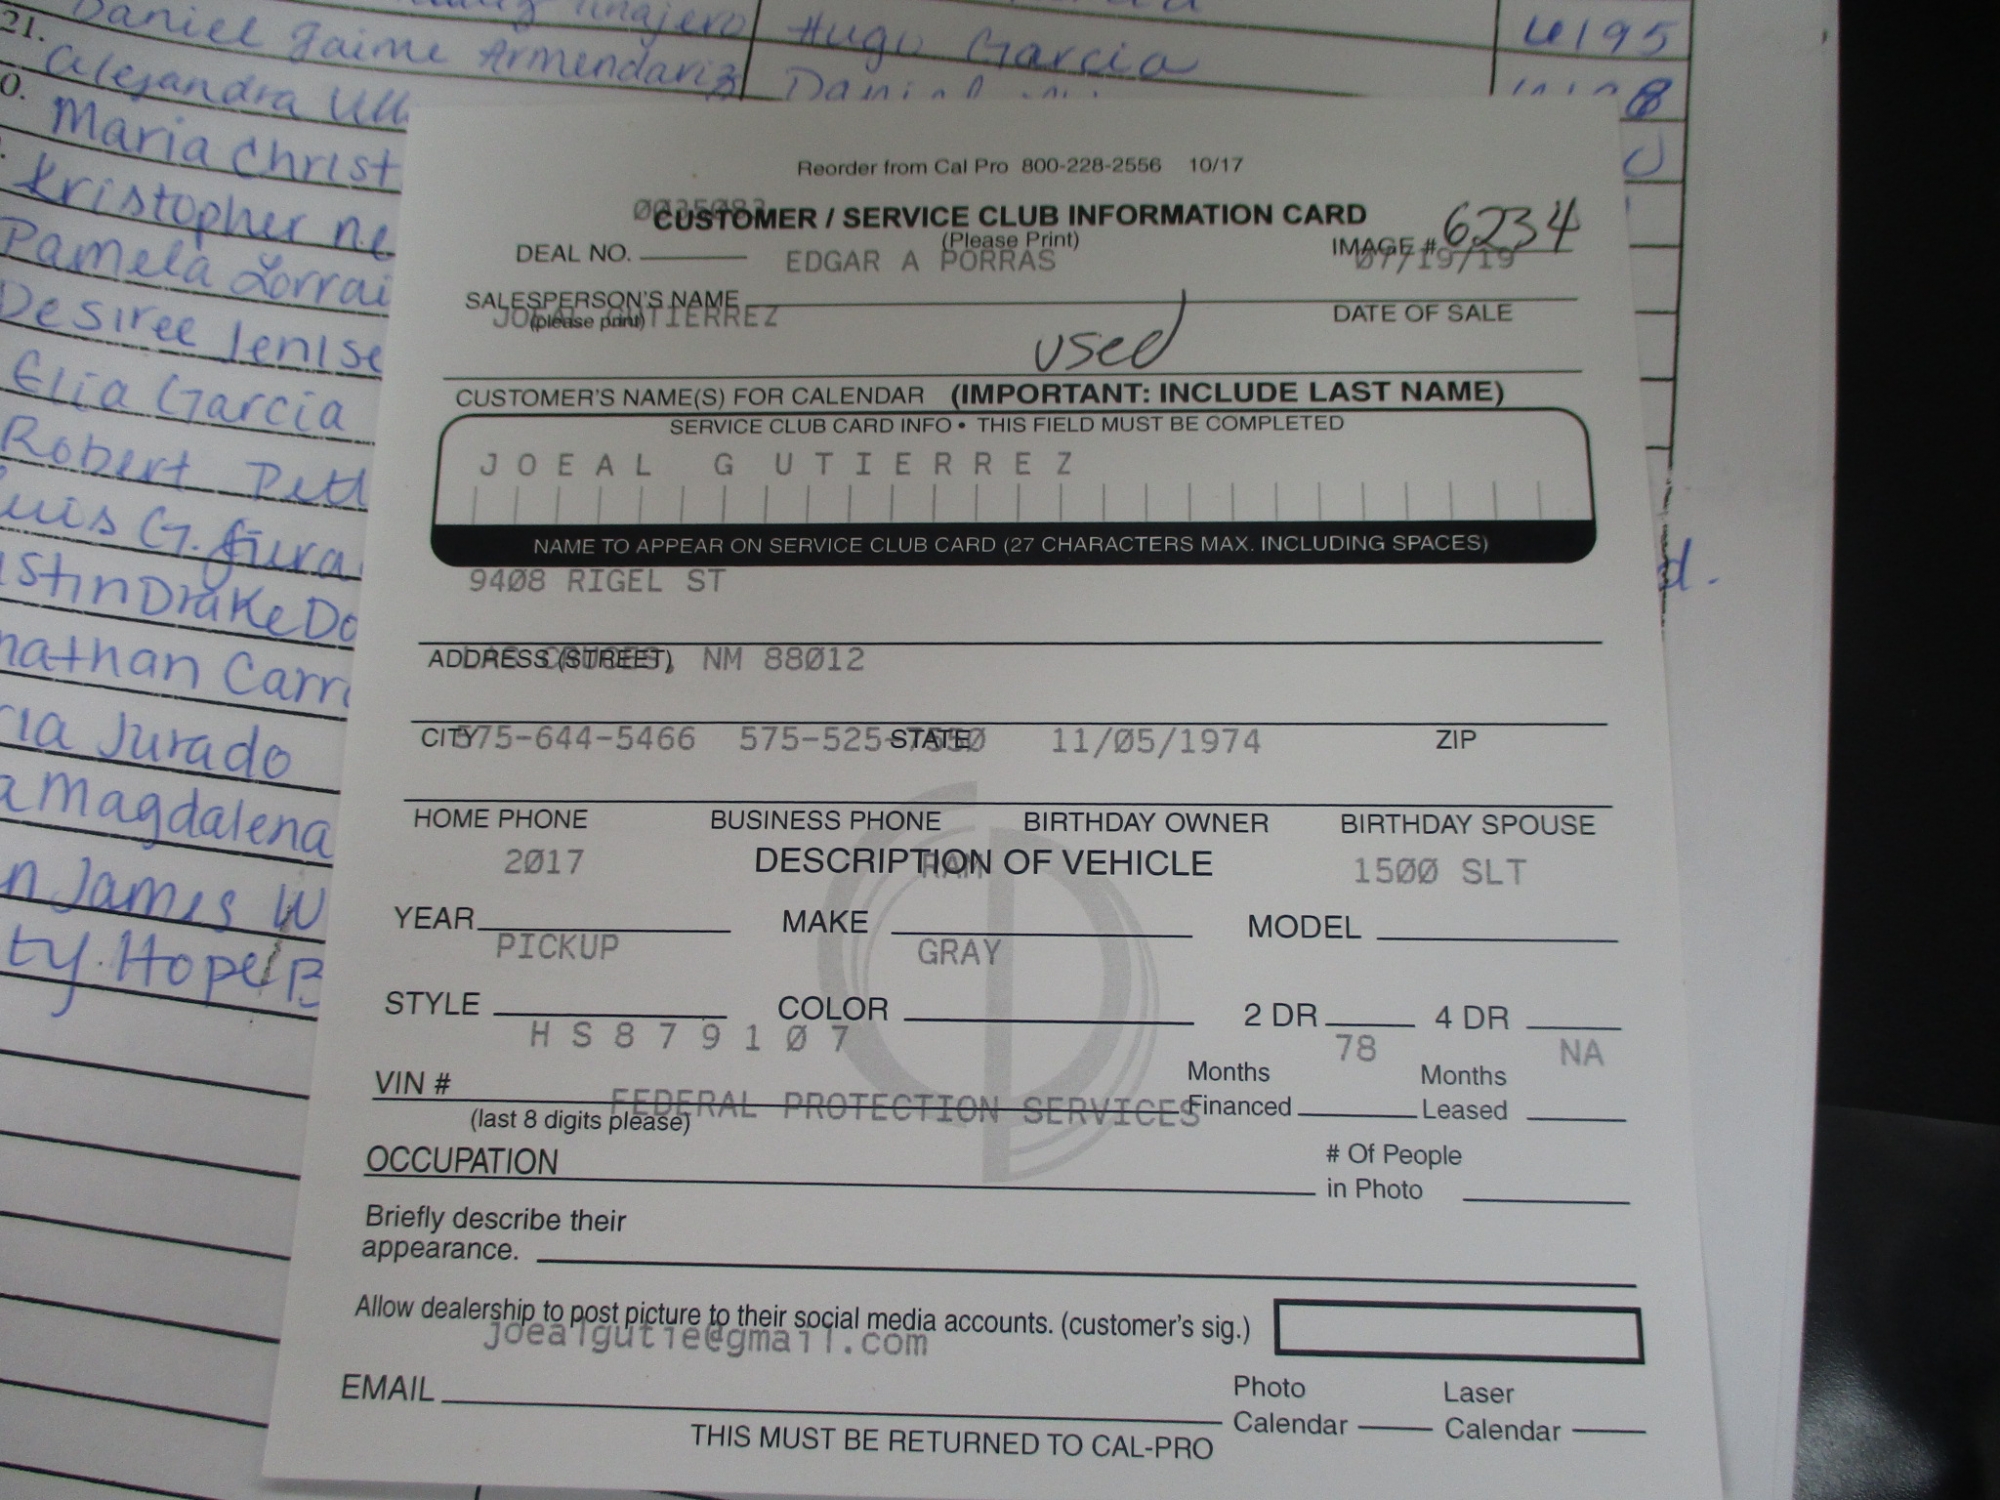 21. Daniel Jaime Armendariz Hugo Garcia 6195
0. Alejandra
Maria Christ
Kristopher Ne
Pamela Lorrai
Desiree Jenise
Elia Garcia
Robert
Luis G.
stin Drake Do
nathan Carr
ria Jurado
a Magdalena
n James W
ty Hope B
d.
Reorder from Cal Pro 800-228-2556 10/17
CUSTOMER / SERVICE CLUB INFORMATION CARD
(Please Print)
6234
DEAL NO. EDGAR A PORRAS IMAGE #
07/19/19
SALESPERSON'S NAME
(please print)
JOEAL GUTIERREZ
DATE OF SALE
used
CUSTOMER'S NAME(S) FOR CALENDAR (IMPORTANT: INCLUDE LAST NAME)
SERVICE CLUB CARD INFO • THIS FIELD MUST BE COMPLETED
JOEAL GUTIERREZ
NAME TO APPEAR ON SERVICE CLUB CARD (27 CHARACTERS MAX. INCLUDING SPACES)
9408 RIGEL ST
ADDRESS (STREET)
LAS CRUCES, NM 88012
CITY STATE ZIP
575-644-5466 11/05/1974
HOME PHONE BUSINESS PHONE BIRTHDAY OWNER BIRTHDAY SPOUSE
DESCRIPTION OF VEHICLE
2017 RAM 1500 SLT
YEAR MAKE MODEL
PICKUP GRAY
STYLE COLOR 2 DR 4 DR
HS879107 78 NA
VIN # Months Financed Months Leased
(last 8 digits please)
FEDERAL PROTECTION SERVICES
OCCUPATION # Of People in Photo
Briefly describe their
appearance.
Allow dealership to post picture to their social media accounts. (customer's sig.)
joealgutie@gmail.com
EMAIL Photo Calendar Laser Calendar
THIS MUST BE RETURNED TO CAL-PRO